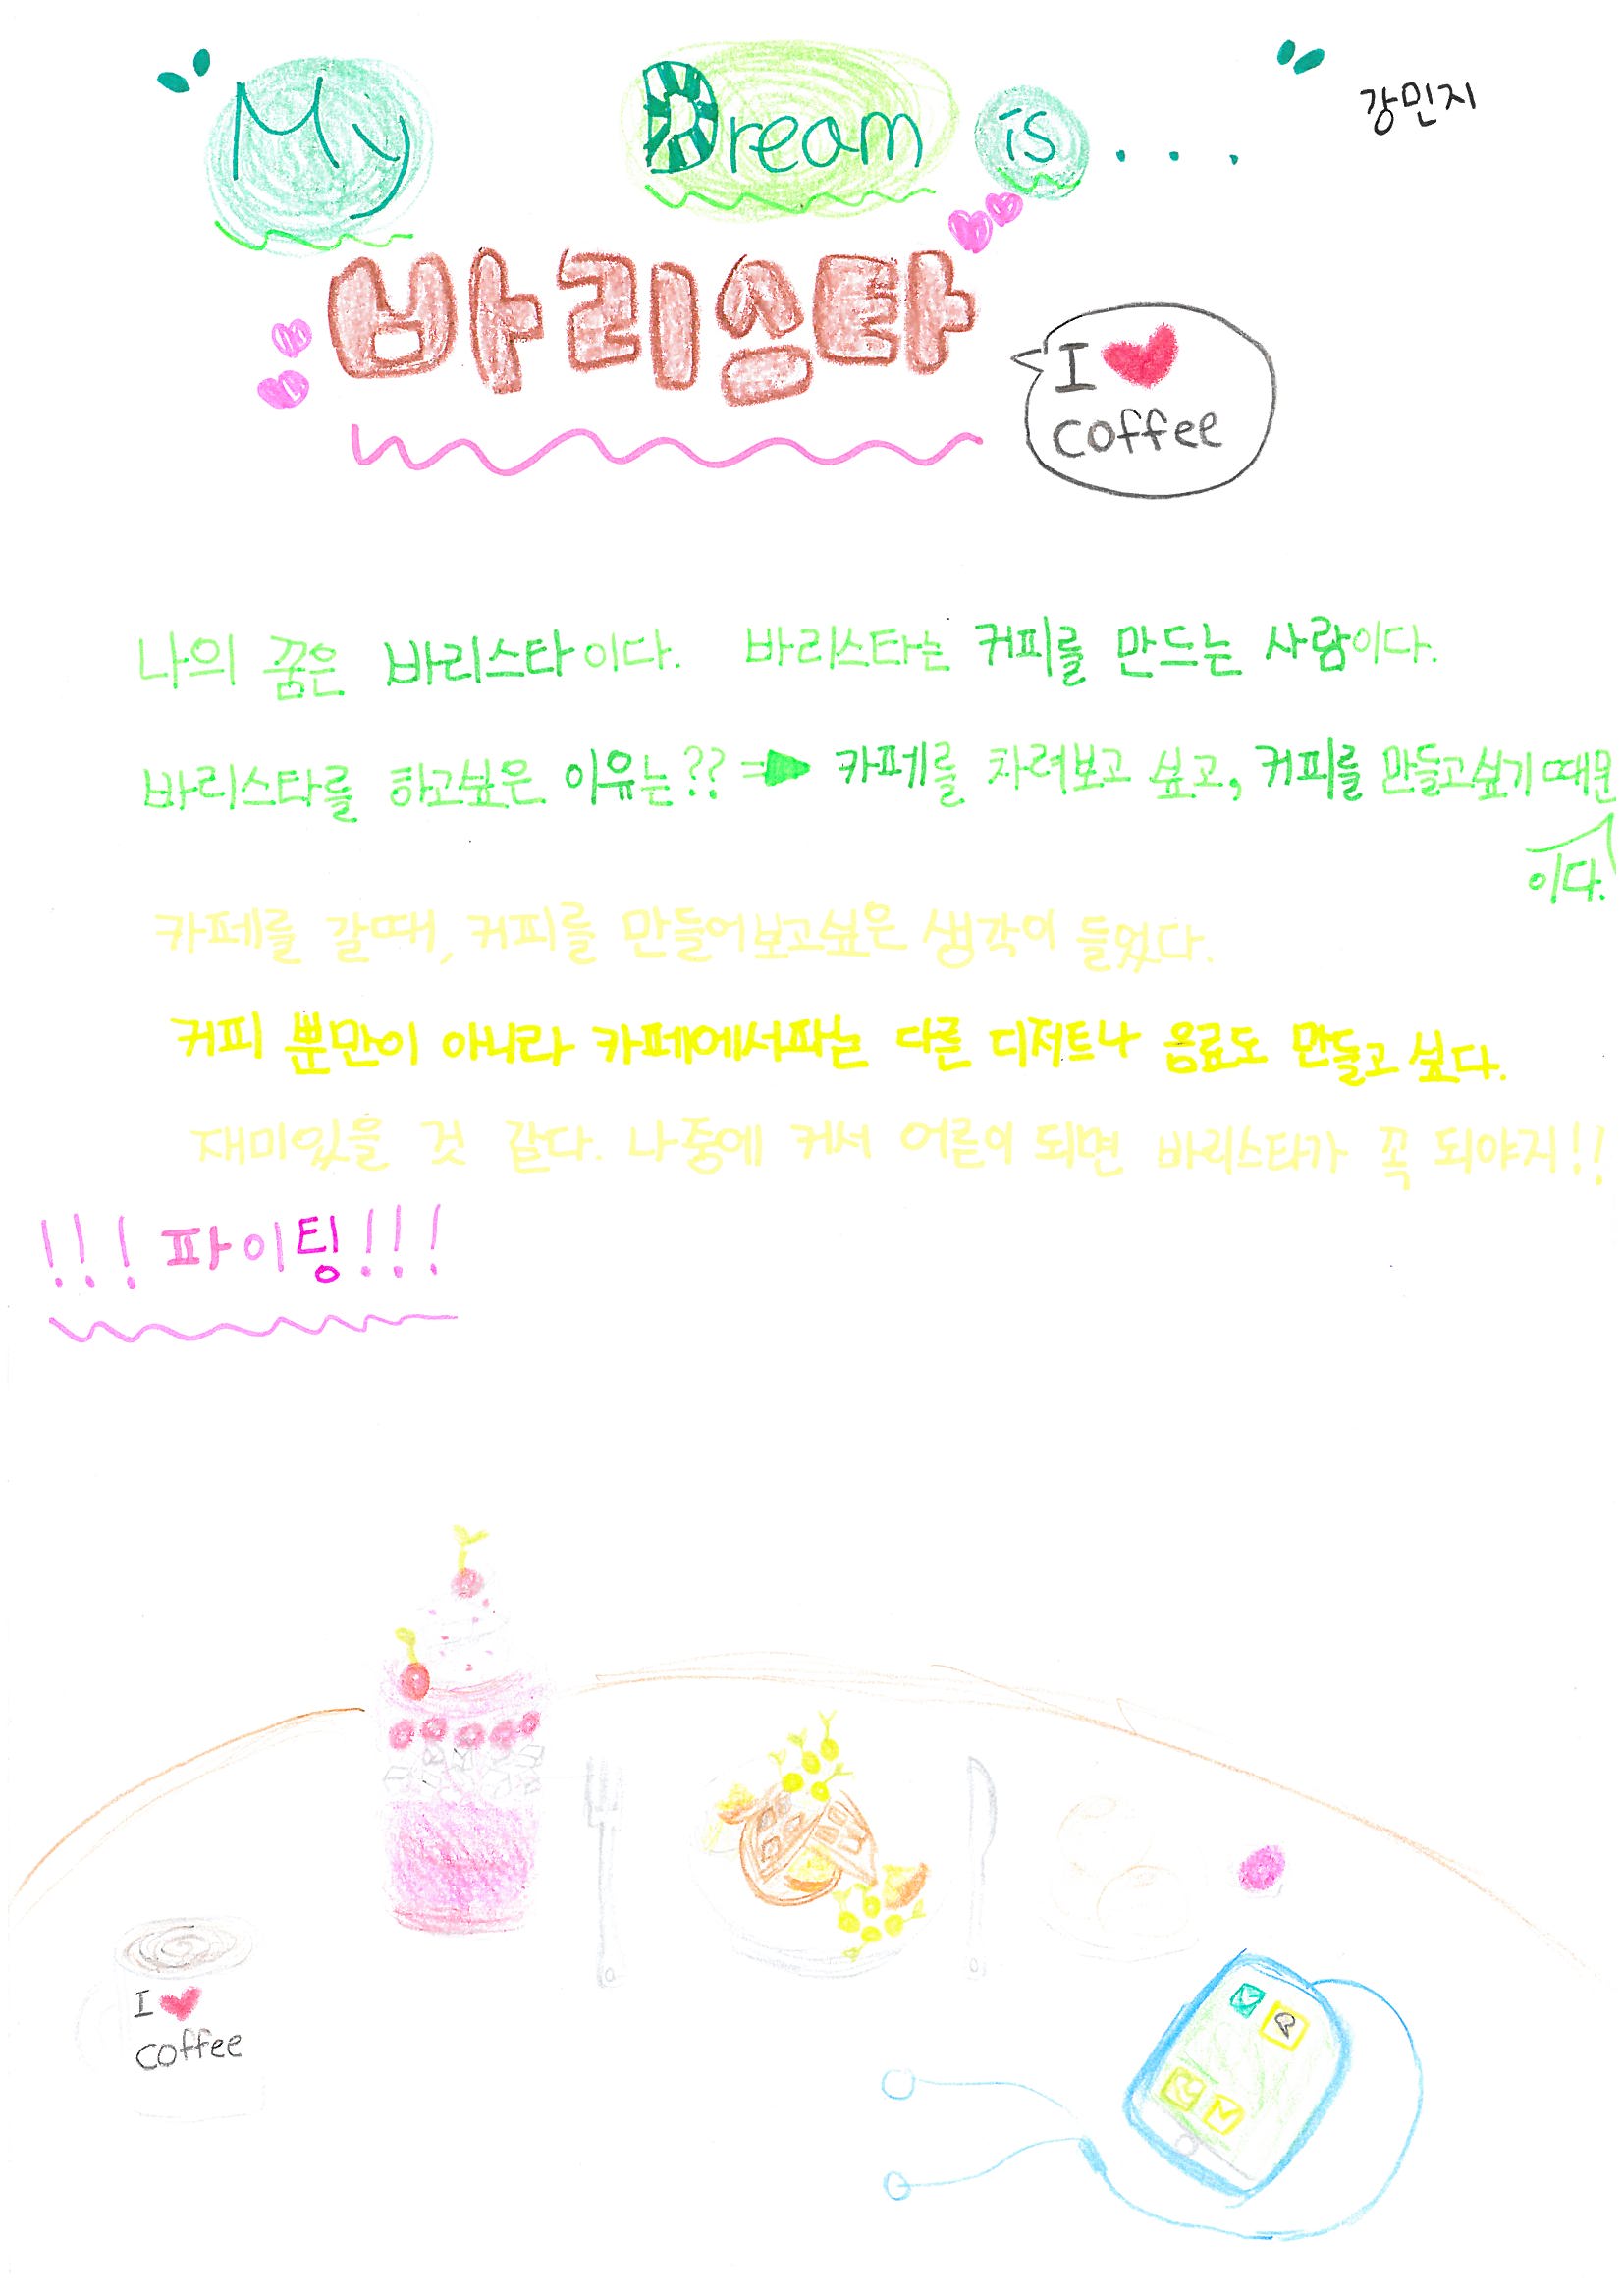 My Dream is ...
강민지
바리스타
I ♥
coffee
나의 꿈은 바리스타이다. 바리스타는 커피를 만드는 사람이다.
바리스타를 하고싶은 이유는?? ⇒ 카페를 차려보고 싶고, 커피를 만들고싶기 때문
이다.
카페를 갈때, 커피를 만들어보고싶은 생각이 들었다.
커피 뿐만이 아니라 카페에서파는 다른 디저트나 음료도 만들고 싶다.
재미있을 것 같다. 나중에 커서 어른이 되면 바리스타가 꼭 되야지!!
!!! 파이팅!!!
I ♥
coffee